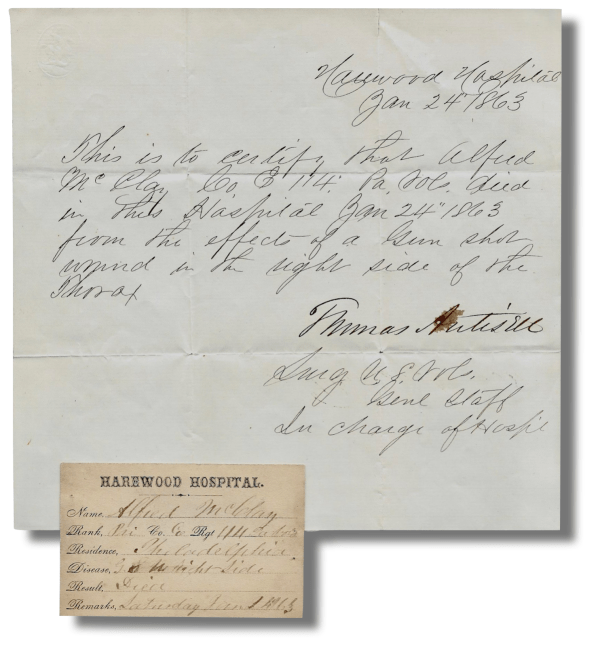 Harewood Hospital
Jan 24" 1863
This is to certify that Alfred
McClay Co 114. Pa. Vols. died
in this Hospital Jan 24" 1863
from the effects of a Gun shot
wound in the right side of the
Thorax
Thomas Antisell
Surg U.S. Vols.
Genl Staff
In charge of Hospl
HAREWOOD HOSPITAL.
Name, Alfred McClay
Rank, Pri Co. Rgt 114
Residence, Philadelphia
Disease, Side
Result, Died
Remarks, Saturday